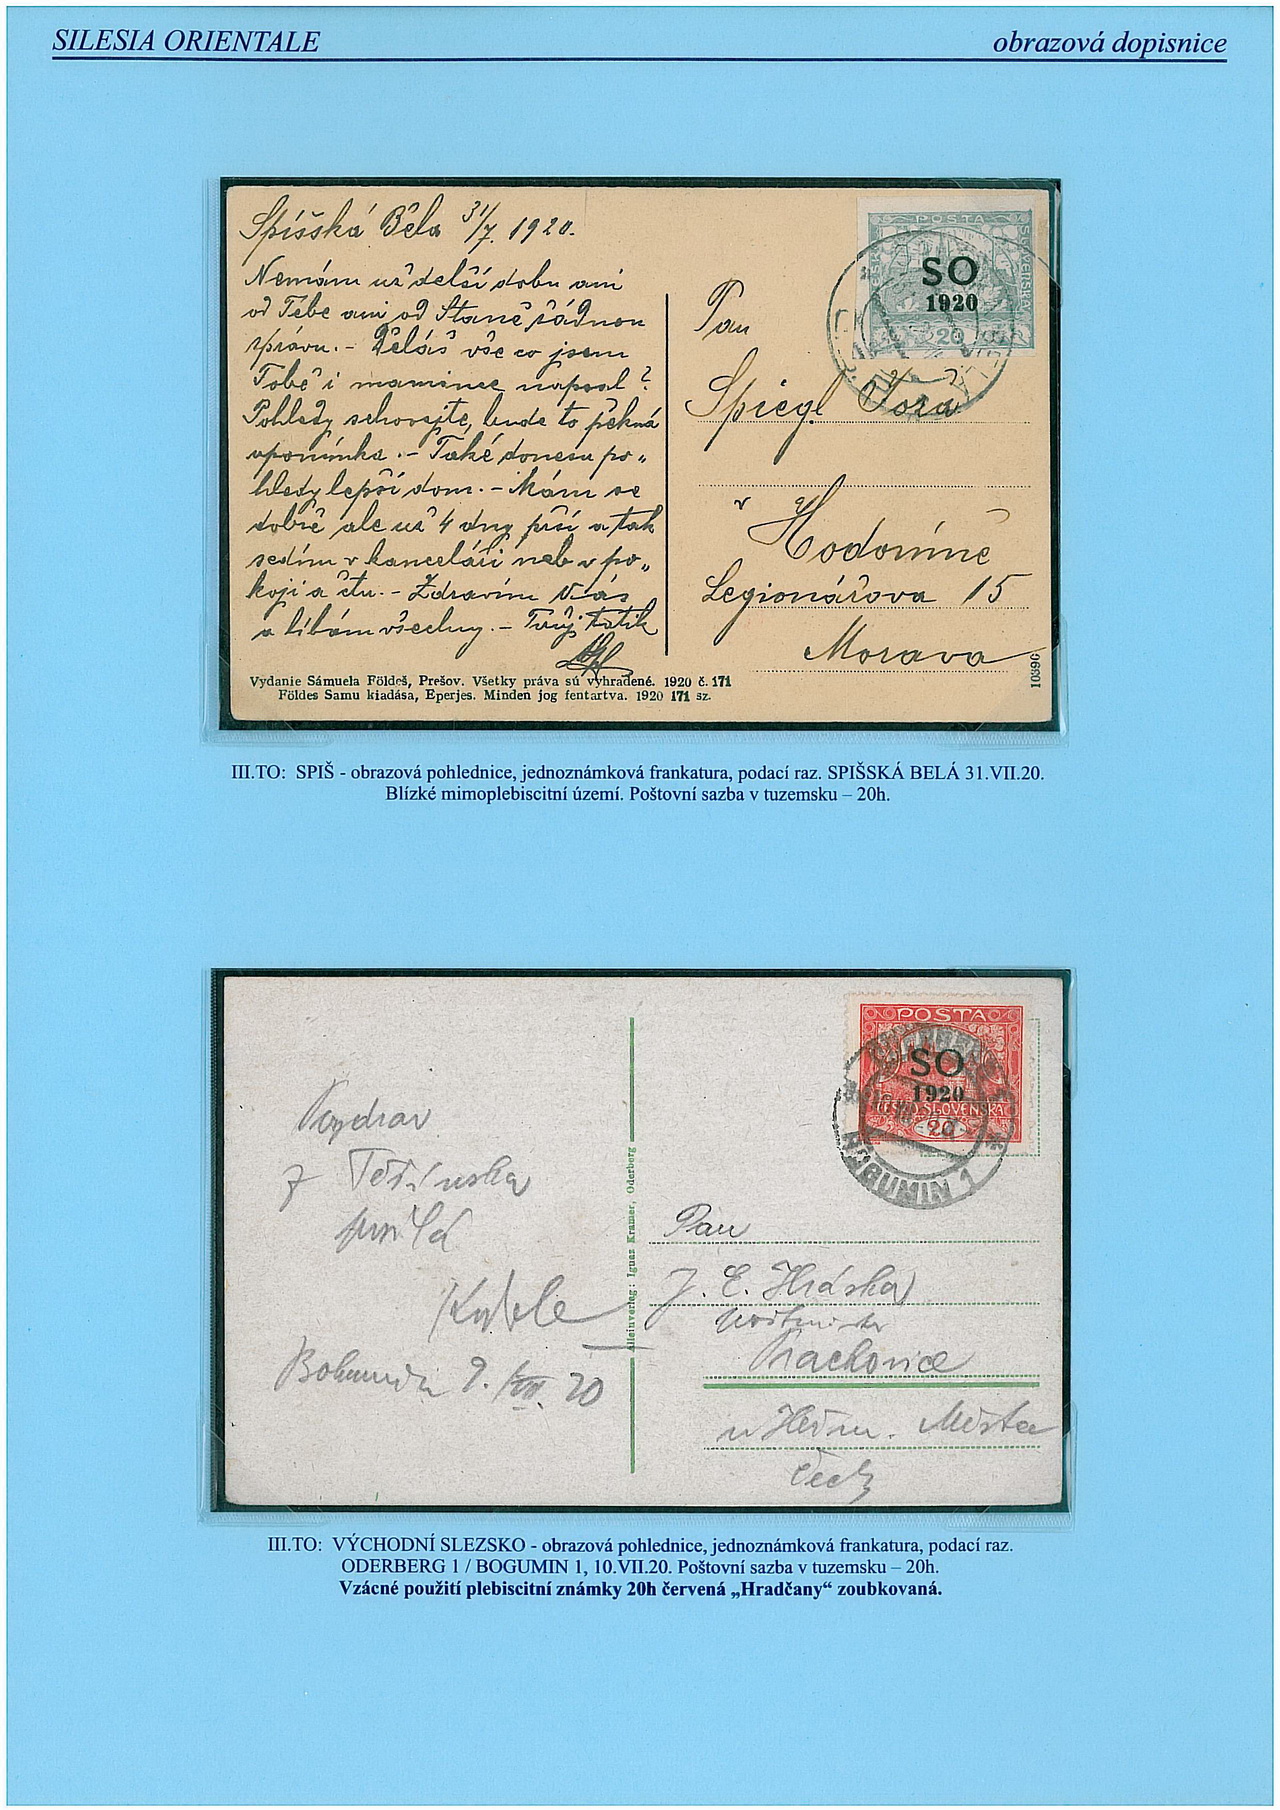 SILESIA ORIENTALE
obrazová dopisnice
Spišská Běla 31/7. 1920.
Nemám už delší dobu ani
od Tebe ani od Staně řádnou
zprávu. - Děláš vše co jsem
Tobě i mamince napsal?
Pohledy schovejte, bude to pěkná
upomínka. - Také donesu po„
hledy lepší dom. - Mám se
dobře ale už 4 dny prší a tak
sedím v kanceláři neb v po„
koji a čtu. - Zdravím Vás
a líbám všechny. - Tvůj tatik
POSTA
ČESKO-SLOVENSKÁ
SO
1920
20
Pan
Spiegl Jožа
v Hodoníně
Legionářova 15
Morava
10396
Vydanie Sámuela Földeš, Prešov. Všetky práva sú vyhradené. 1920 č. 171
Földes Samu kiadása, Eperjes. Minden jog fentartva. 1920 171 sz.
III.TO: SPIŠ - obrazová pohlednice, jednoznámková frankatura, podací raz. SPIŠSKÁ BELÁ 31.VII.20.
Blízké mimoplebiscitní území. Poštovní sazba v tuzemsku – 20h.
POSTA
SO
1920
ČESKO-SLOVENSKÁ
20
BOGUMIN 1
Pozdrav
z Těšínska
posílá
Bohumín 9./VII. 20
Alleinverlag: Ignaz Kramer, Oderberg
Pan
J. E. Hráský
Prachovice
u Heřm. Městce
Čechy
III.TO: VÝCHODNÍ SLEZSKO - obrazová pohlednice, jednoznámková frankatura, podací raz.
ODERBERG 1 / BOGUMIN 1, 10.VII.20. Poštovní sazba v tuzemsku – 20h.
Vzácné použití plebiscitní známky 20h červená „Hradčany“ zoubkovaná.